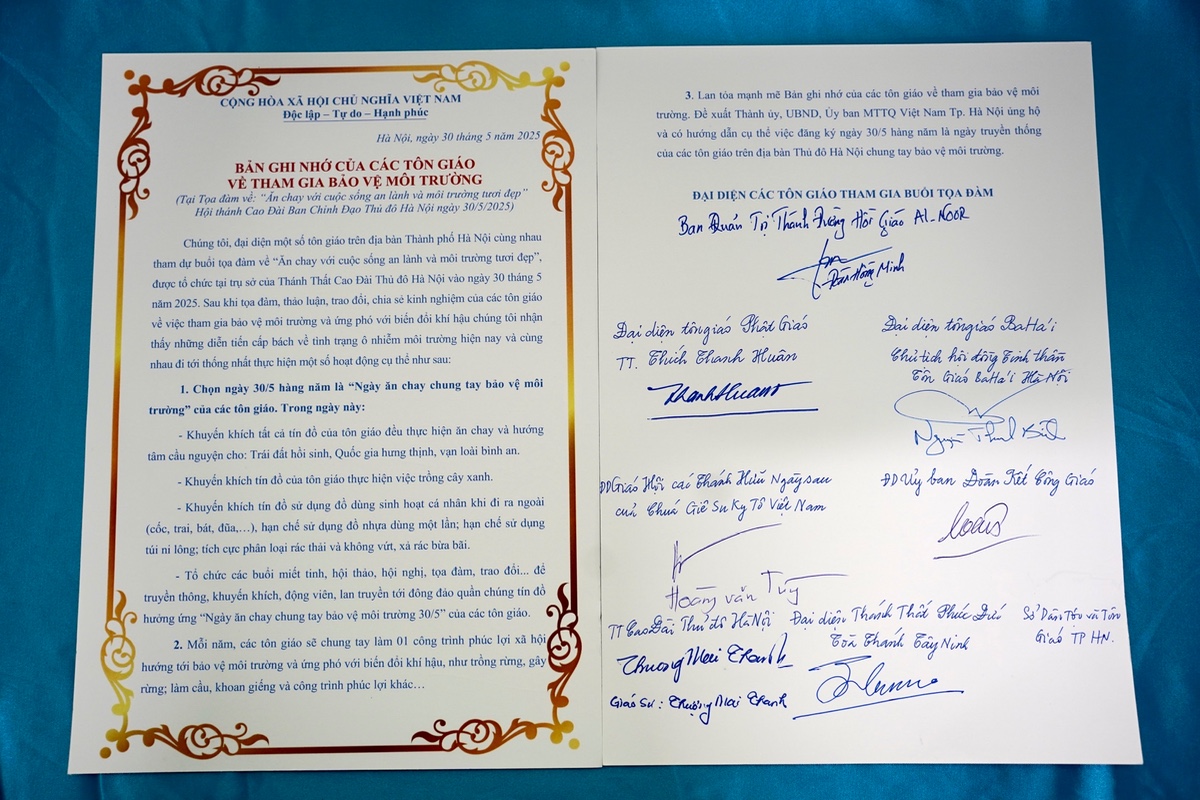 CỘNG HÒA XÃ HỘI CHỦ NGHĨA VIỆT NAM
Độc lập – Tự do – Hạnh phúc
Hà Nội, ngày 30 tháng 5 năm 2025
BẢN GHI NHỚ CỦA CÁC TÔN GIÁO
VỀ THAM GIA BẢO VỆ MÔI TRƯỜNG
(Tại Tọa đàm về: “Ăn chay với cuộc sống an lành và môi trường tươi đẹp”
Hội thánh Cao Đài Ban Chỉnh Đạo Thủ đô Hà Nội ngày 30/5/2025)
Chúng tôi, đại diện một số tôn giáo trên địa bàn Thành phố Hà Nội cùng nhau
tham dự buổi tọa đàm về “Ăn chay với cuộc sống an lành và môi trường tươi đẹp”,
được tổ chức tại trụ sở của Thánh Thất Cao Đài Thủ đô Hà Nội vào ngày 30 tháng 5
năm 2025. Sau khi tọa đàm, thảo luận, trao đổi, chia sẻ kinh nghiệm của các tôn giáo
về việc tham gia bảo vệ môi trường và ứng phó với biến đổi khí hậu chúng tôi nhận
thấy những diễn tiến cấp bách về tình trạng ô nhiễm môi trường hiện nay và cùng
nhau đi tới thống nhất thực hiện một số hoạt động cụ thể như sau:
1. Chọn ngày 30/5 hàng năm là “Ngày ăn chay chung tay bảo vệ môi
trường” của các tôn giáo. Trong ngày này:
- Khuyến khích tất cả tín đồ của tôn giáo đều thực hiện ăn chay và hướng
tâm cầu nguyện cho: Trái đất hồi sinh, Quốc gia hưng thịnh, vạn loài bình an.
- Khuyến khích tín đồ của tôn giáo thực hiện việc trồng cây xanh.
- Khuyến khích tín đồ sử dụng đồ dùng sinh hoạt cá nhân khi đi ra ngoài
(cốc, trai, bát, đũa,…), hạn chế sử dụng đồ nhựa dùng một lần; hạn chế sử dụng
túi ni lông; tích cực phân loại rác thải và không vứt, xả rác bừa bãi.
- Tổ chức các buổi miết tinh, hội thảo, hội nghị, tọa đàm, trao đổi... để
truyền thông, khuyến khích, động viên, lan truyền tới đông đảo quần chúng tín đồ
hưởng ứng “Ngày ăn chay chung tay bảo vệ môi trường 30/5” của các tôn giáo.
2. Mỗi năm, các tôn giáo sẽ chung tay làm 01 công trình phúc lợi xã hội
hướng tới bảo vệ môi trường và ứng phó với biến đổi khí hậu, như trồng rừng, gây
rừng; làm cầu, khoan giếng và công trình phúc lợi khác…
3. Lan tỏa mạnh mẽ Bản ghi nhớ của các tôn giáo về tham gia bảo vệ môi
trường. Đề xuất Thành ủy, UBND, Ủy ban MTTQ Việt Nam Tp. Hà Nội ủng hộ
và có hướng dẫn cụ thể việc đăng ký ngày 30/5 hàng năm là ngày truyền thống
của các tôn giáo trên địa bàn Thủ đô Hà Nội chung tay bảo vệ môi trường.
ĐẠI DIỆN CÁC TÔN GIÁO THAM GIA BUỔI TỌA ĐÀM
Ban Quản Trị Thánh Đường Hồi Giáo AL-NOOR
Đoàn Hồng Minh
Đại diện tôn giáo Phật Giáo
TT. Thích Thanh Huân
ThanhHuan
Đại diện tôn giáo BaHa'i
Chủ tịch hội đồng Tinh thần
Tôn Giáo BaHa'i Hà Nội
ĐD Giáo Hội các Thánh Hữu Ngày sau
của Chúa Giê Su Ky Tô Việt Nam
Hoàng Văn Tùy
ĐD Ủy ban Đoàn Kết Công Giáo
TT Cao Đài Thủ đô Hà Nội
Thuong Mai Thanh
Giáo Sư: Thượng Mai Thanh
Đại diện Thánh Thất Phúc Đức
Tòa Thánh Tây Ninh
Sở Dân Tộc và Tôn
Giáo TP HN.